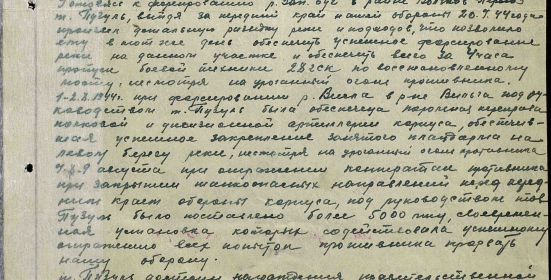 Готовясь к форсированию р. Зап. Буг в районе
т. Пузуль, выйдя за передний край нашей обороны 20.7.44 года
произвел детальную разведку реки и подходов, что позволило
ему в тот же день обеспечить успешное форсирование
реки на данном участке и обеспечить всего за 4 часа
пропуск боевой техники 28 гск по восстановленному
мосту, несмотря на ураганный огонь противника.
1-2.8.1944 при форсировании р. Висла в р-не Вильга под ру-
ководством т. Пузуль была обеспечена паромная переправа
полковой и дивизионной артиллерии корпуса, обеспечив-
шая успешное закрепление занятого плацдарма на
левом берегу реки, несмотря на ураганный огонь противника
августа при отражении контратак противника
при закрытии танкоопасных направлений перед перед-
ним краем обороны корпуса, под руководством тов.
Пузуль было поставлено более 5000 мин, своевремен-
ная установка которых содействовала успешному
отражению всех попыток противника прорвать
нашу оборону.
т. Пузуль достоин награждения правительственной